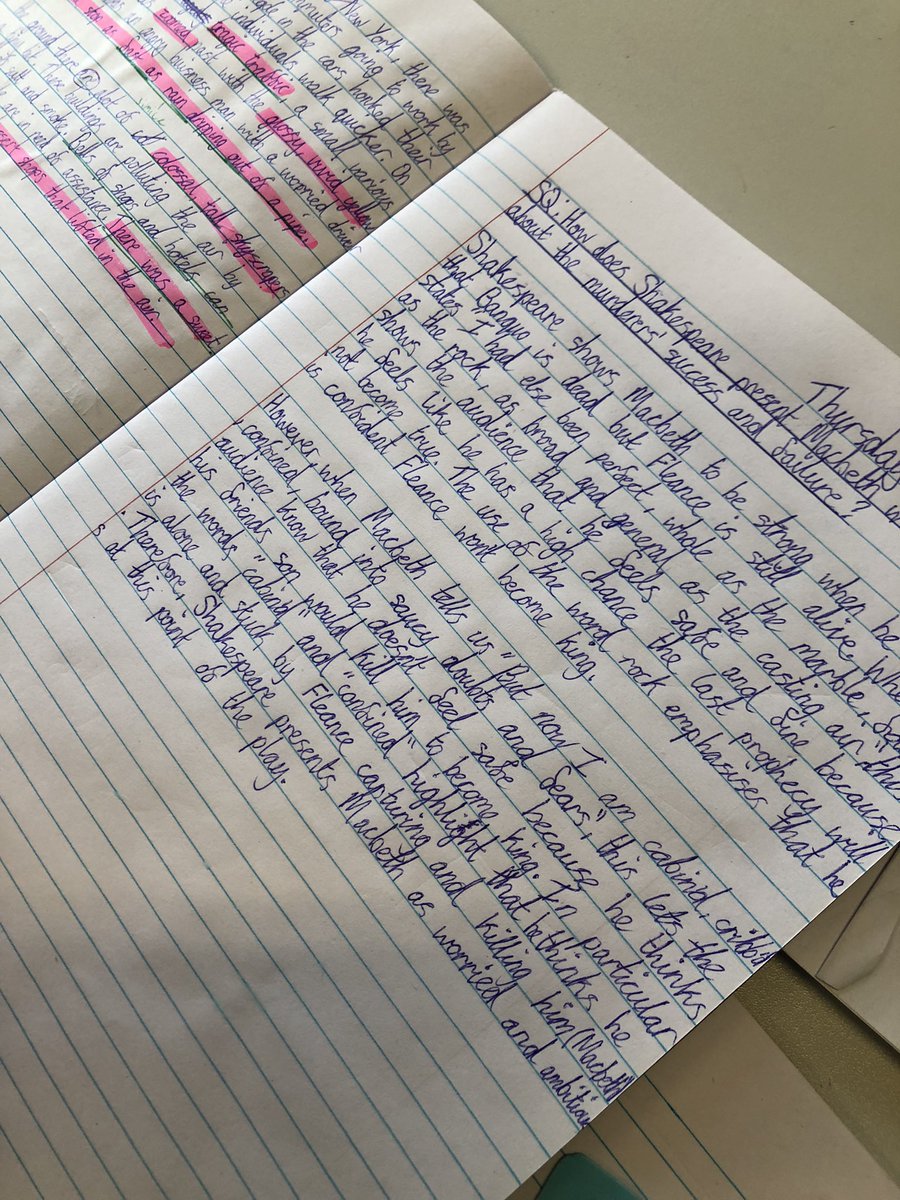 New York, there was
commuters going to work by
traffic, in the cars honked their
individuals walk quicker. On
last with the glossy, virvid yellow
busness man with a worried driver
for a christ as rain dripping out of a pipe.
around there a lot of colossal tall skyscrapers
These buildings are polluting the air by
and smoke. Bells of shops and hotels can
are in need of assistance. There was a sweet
shops that lifted in the air
Thursday
SQ: How does Shakespeare present Macbeth
about the murderers' success and failure?
Shakespeare shows Macbeth to be strong when he
that Banquo is dead but Fleance is still alive. When
states I had else been perfect, whole as the marble,
as the rock, as broad and general as the casting air" this
shows the audience that he feels safe and fine because
he feels like he has a high chance the last prophecy will
not become true. The use of the word rock emphasises that he
is confident Fleance wont become king.
However, when Macbeth tells us "But now I am cabined, cribbd
confined, bound into saucy doubts and fears", this lets the
audience know that he doesnt feel safe because he thinks
his friends son would kill him to become king. In particular
the words "cabined" and "confined" highlight that he thinks he
is alone and stuck by Fleance capturing and killing him (Macbeth)
Therefore, Shakespeare presents Macbeth as worried and ambitiou
s at this point of the play.